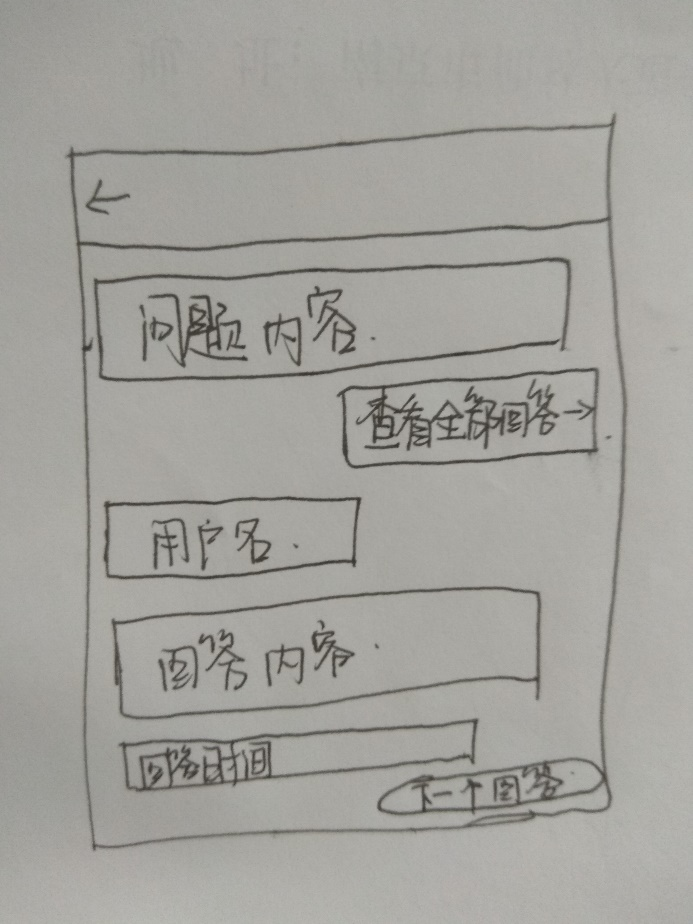 ←
问题内容.
查看全部回答→
用户名.
回答内容.
回答时间
下一个回答.